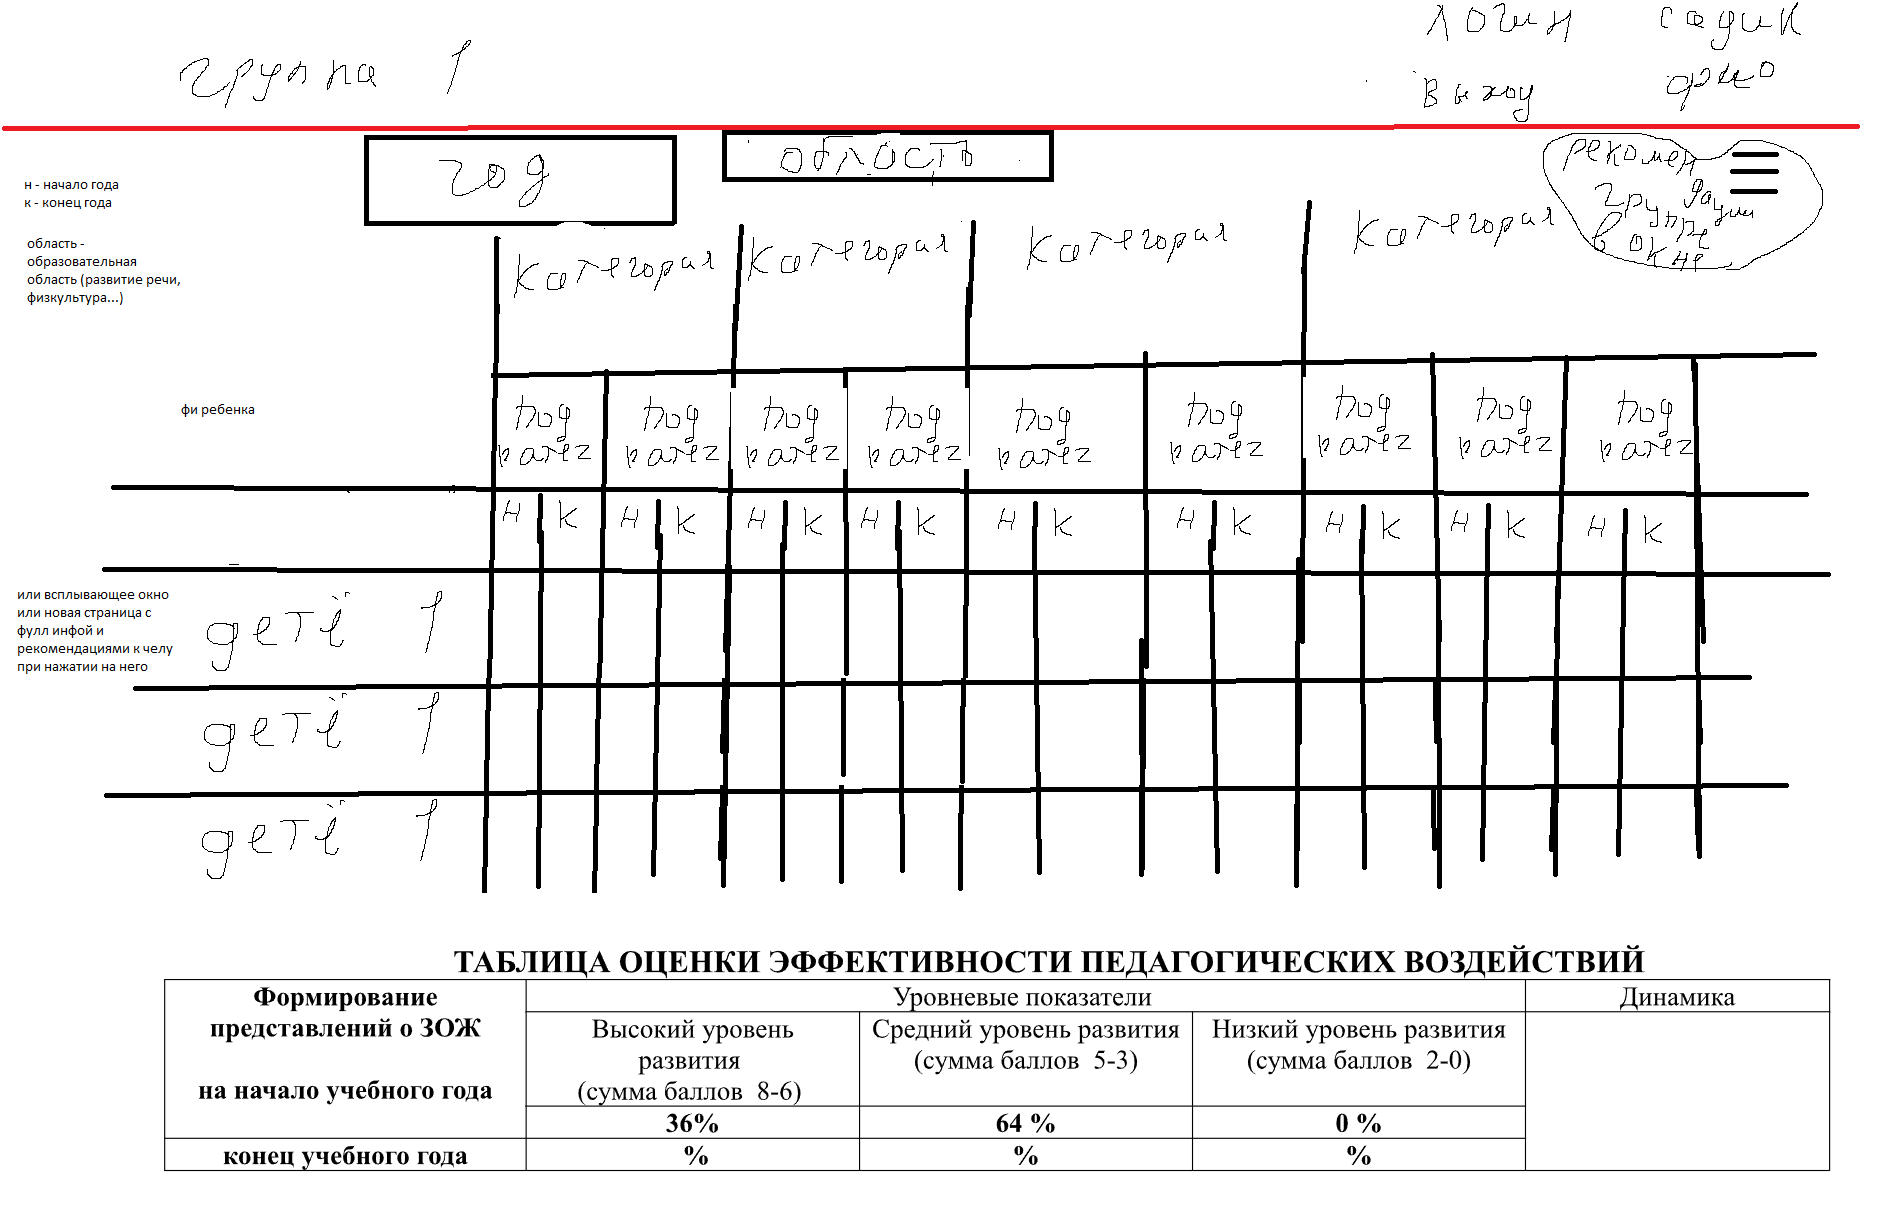 логин садик
группа 1
выход фио
год
область
рекомен
дации
группе
в окне
н - начало года
к - конец года
область -
образовательная
область (развитие речи,
физкультура...)
категория категория категория категория
фи ребенка
под под под под под под под под под
катег катег катег катег катег катег катег катег катег
н к н к н к н к н к н к н к н к н к
или всплывающее окно
или новая страница с
фулл инфой и
рекомендациями к челу
при нажатии на него
детё 1
детё 1
детё 1
ТАБЛИЦА ОЦЕНКИ ЭФФЕКТИВНОСТИ ПЕДАГОГИЧЕСКИХ ВОЗДЕЙСТВИЙ
Формирование
представлений о ЗОЖ
на начало учебного года
Уровневые показатели
Динамика
Высокий уровень
развития
(сумма баллов 8-6)
Средний уровень развития
(сумма баллов 5-3)
Низкий уровень развития
(сумма баллов 2-0)
36% 64 % 0 %
конец учебного года % % %